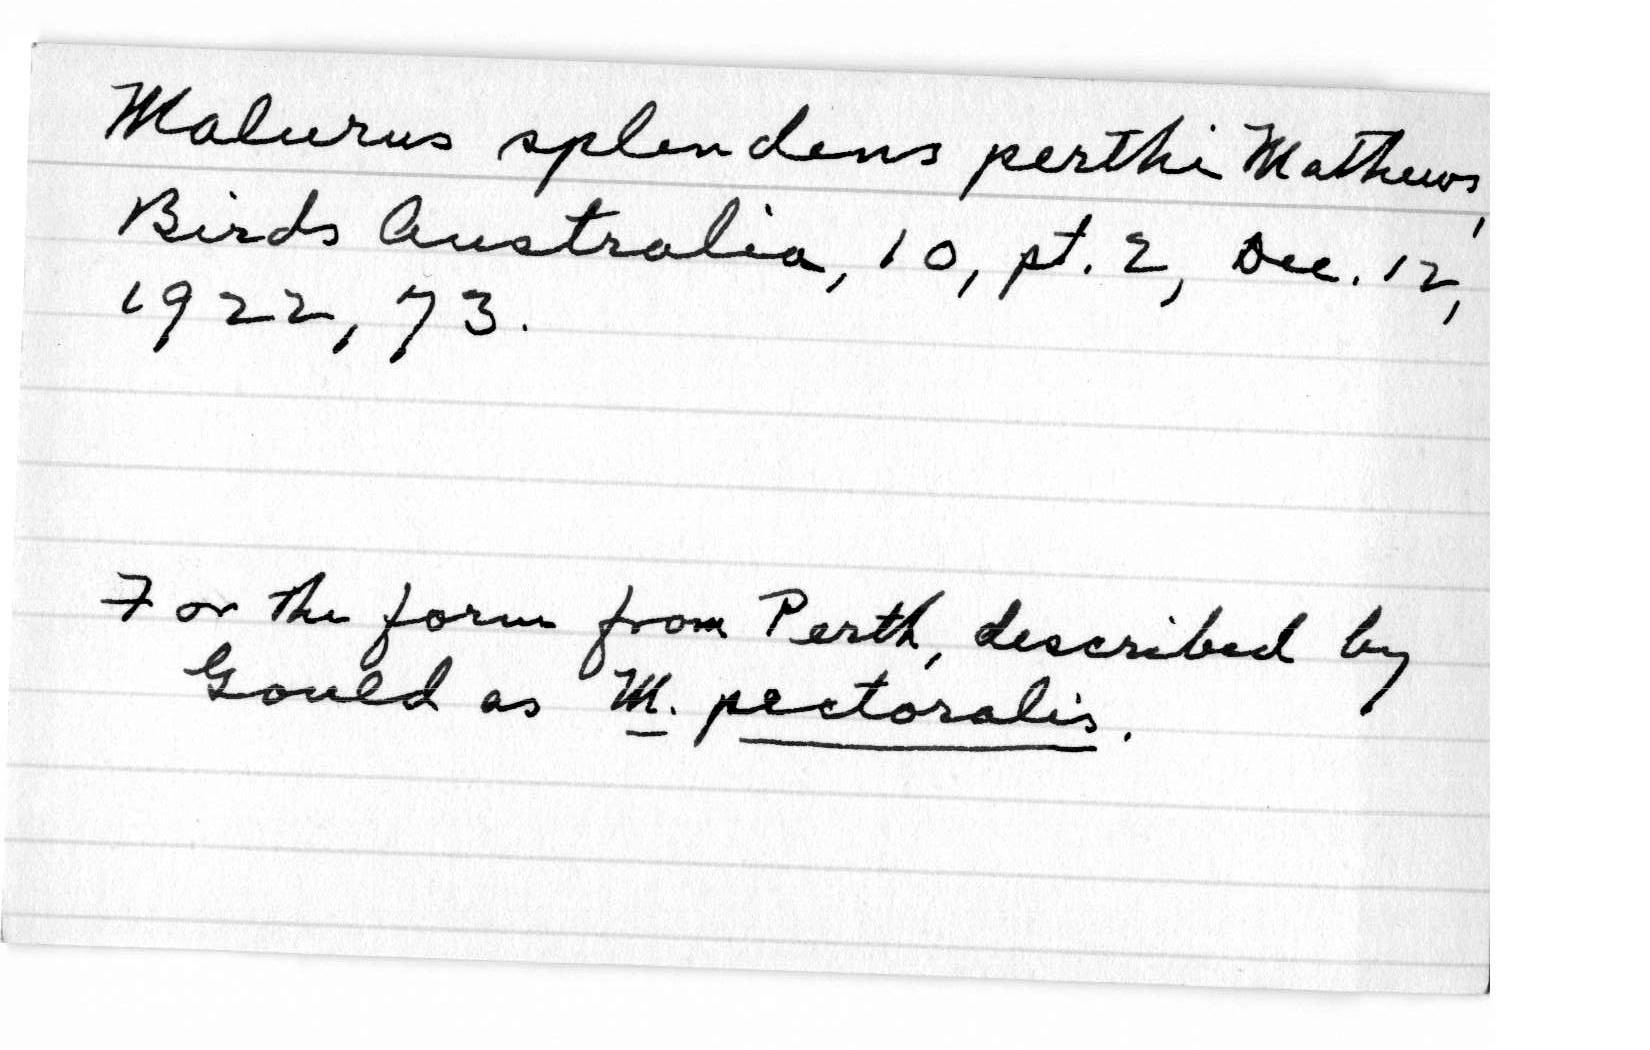 Malurus splendens perthi Mathews,
Birds Australia, 10, pt. 2, Dec. 12,
1922, 73.
For the form from Perth, described by
Gould as M. pectoralis.